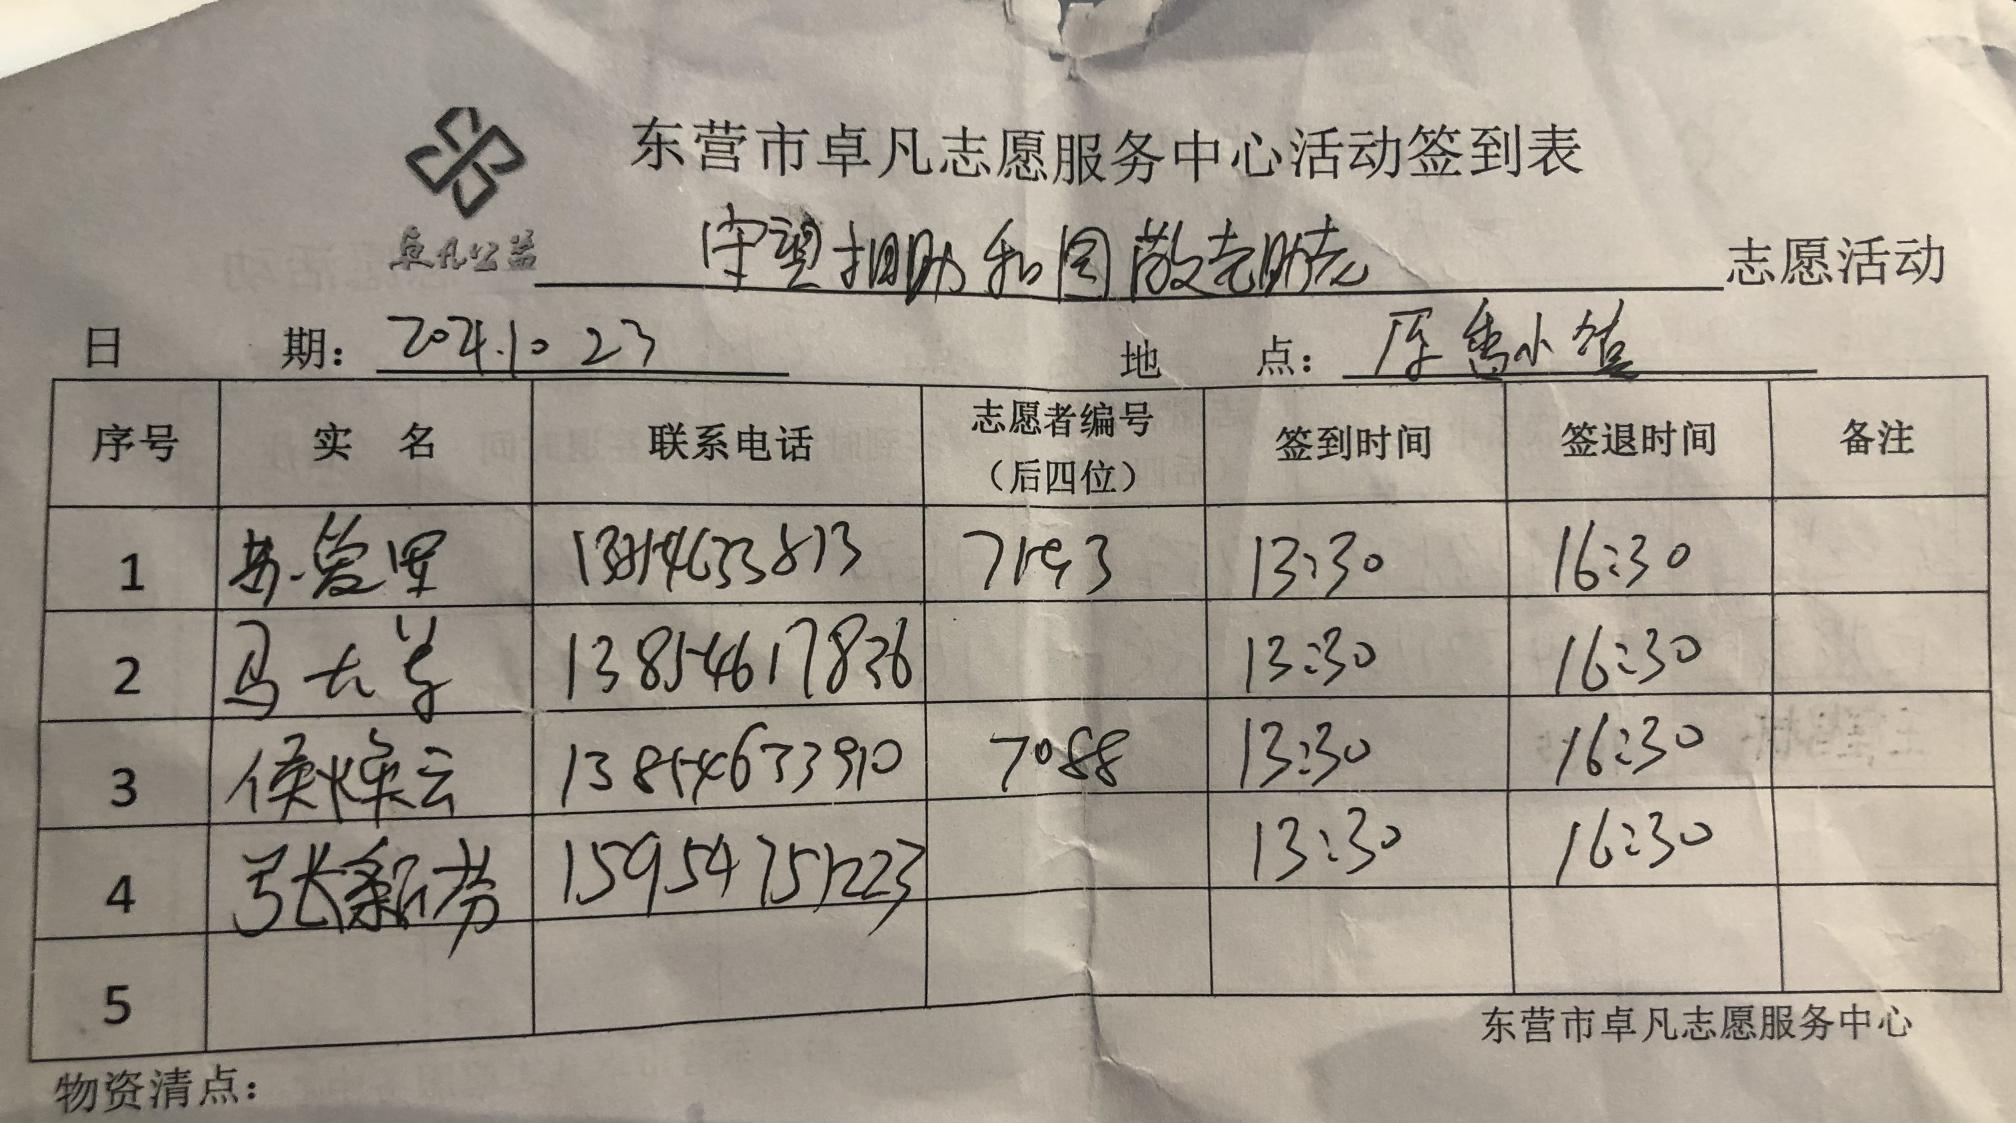 东营市卓凡志愿服务中心活动签到表
卓凡公益
守望相助和园敬老助老 志愿活动
日 期：2024.10 23 地 点：厚香小馆
序号 实 名 联系电话 志愿者编号（后四位） 签到时间 签退时间 备注
1 苏爱 7193 13:30 16:30
2 马 13854617836 13:30 16:30
3 侯焕云 13854633910 7088 13:30 16:30
4 张新芳 15954751223 13:30 16:30
5
东营市卓凡志愿服务中心
物资清点：